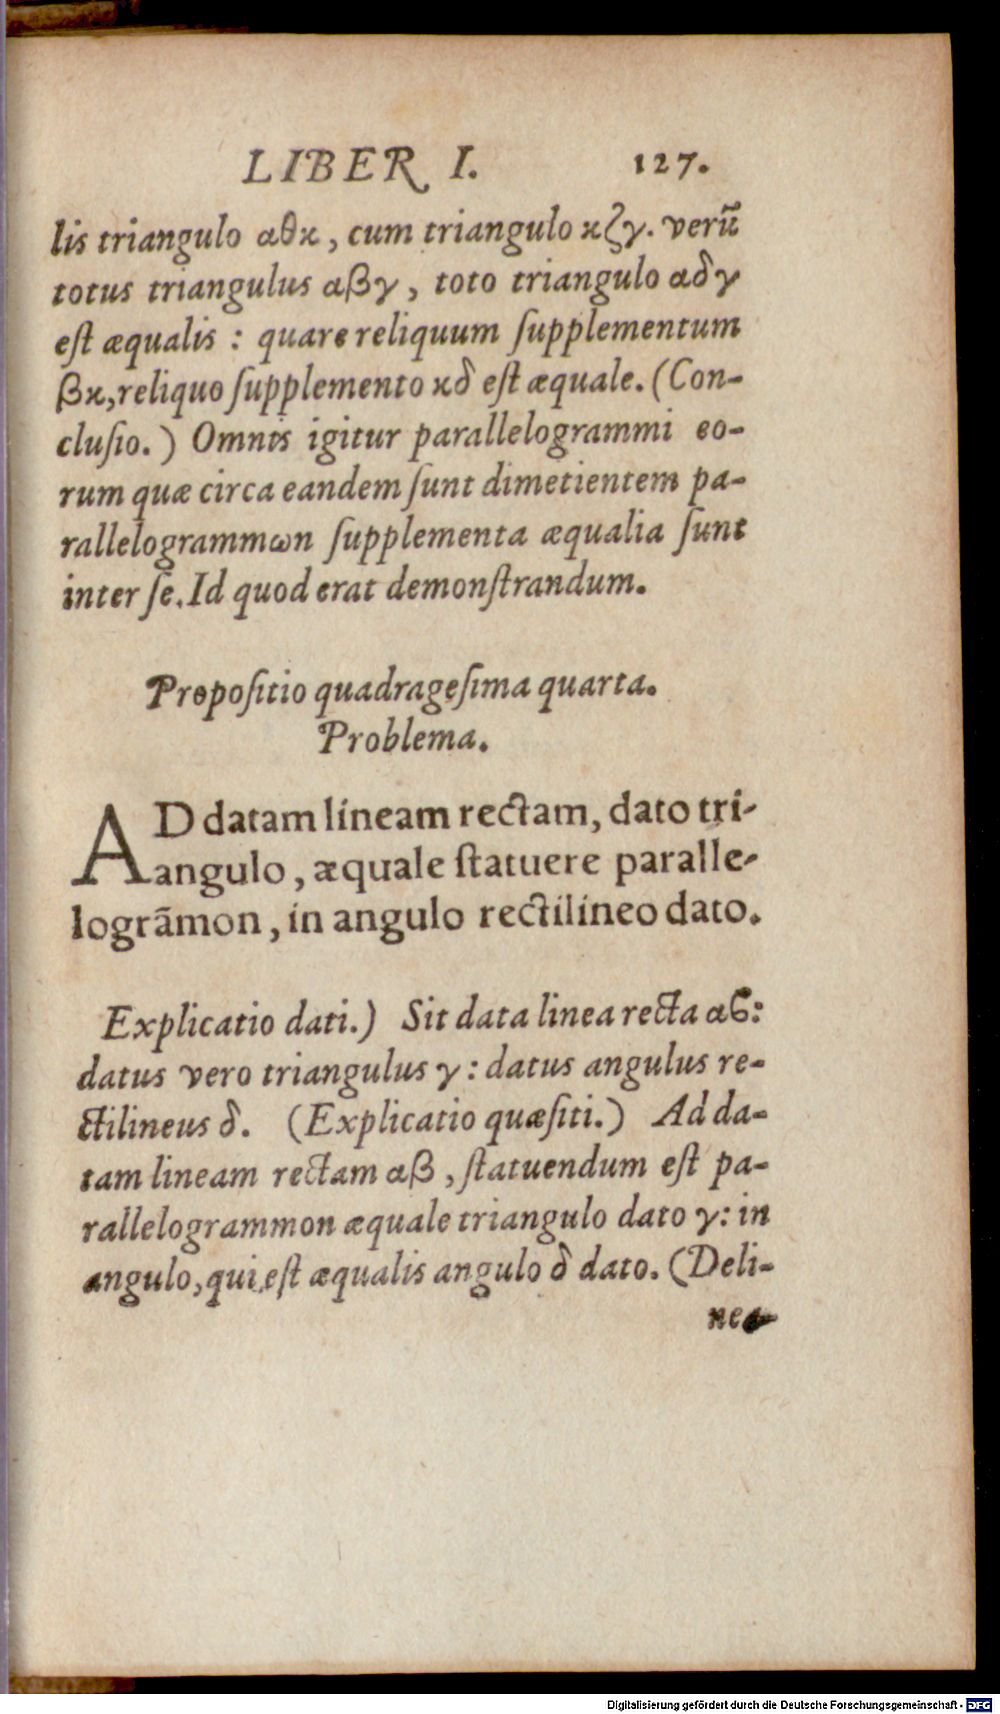 LIBER I. 127.
lis triangulo αθκ, cum triangulo κζγ. verũ
totus triangulus αβγ, toto triangulo αδγ
eſt æqualis : quare reliquum ſupplementum
βκ, reliquo ſupplemento κδ eſt æquale. (Con-
cluſio.) Omnis igitur parallelogrammi eo-
rum quæ circa eandem ſunt dimetientem pa-
rallelogrammωn ſupplementa æqualia ſunt
inter ſe. Id quod erat demonſtrandum.
Propoſitio quadrageſima quarta.
Problema.
AD datam lineam rectam, dato tri-
angulo, æquale ſtatuere paralle-
logrãmon, in angulo rectilineo dato.
Explicatio dati.) Sit data linea recta αϐ:
datus vero triangulus γ: datus angulus re-
ctilineus δ. (Explicatio quæſiti.) Ad da-
tam lineam rectam αβ, ſtatuendum eſt pa-
rallelogrammon æquale triangulo dato γ: in
angulo, qui eſt æqualis angulo δ dato. (Deli-
nea-
Digitalisierung gefördert durch die Deutsche Forschungsgemeinschaft - DFG